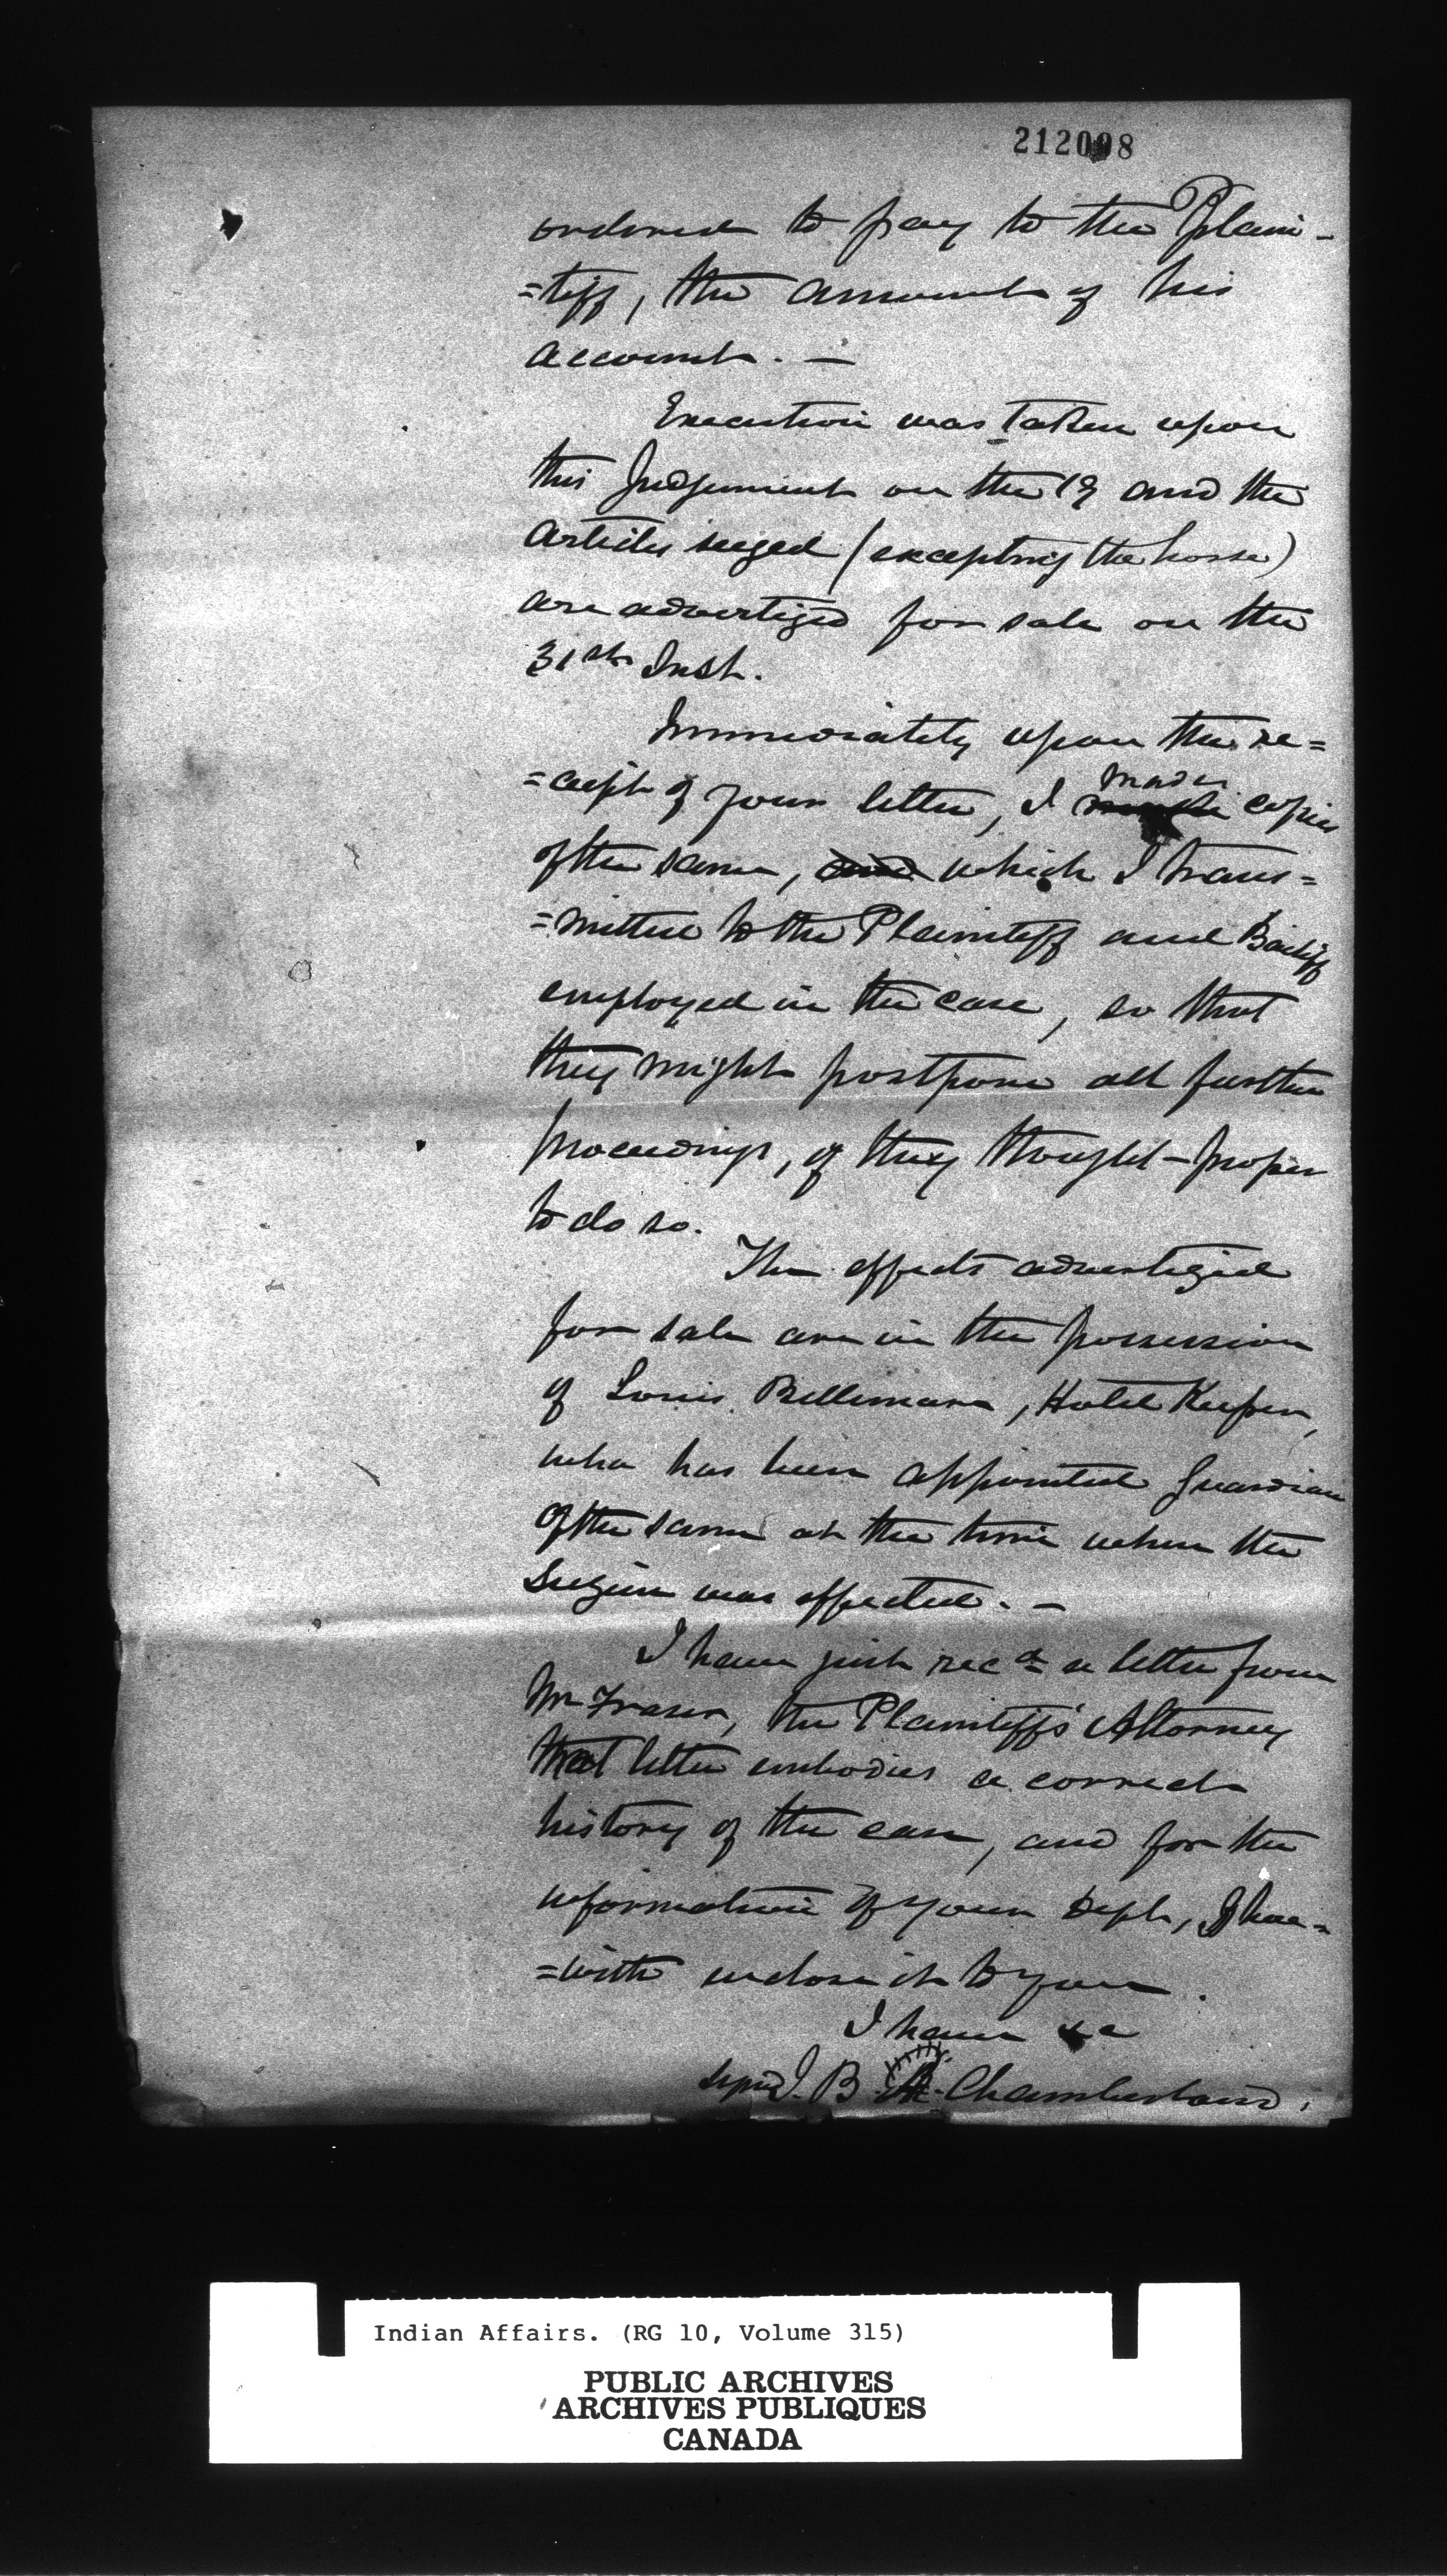 212098
ordered to pay to the Plain-
=tiff, the amount of his
account. —
Execution was taken upon
this Judgement on the 19 and the
articles seized (excepting the horse)
are advertized for sale on the
31st Inst.
Immediately upon the re=
=ceipt of your letter, I made copies
of the same, and which I trans=
=mitted to the Plaintiff and Bailiff
employed in the case, so that
they might postpone all further
proceedings, if they thought proper
to do so.
The effects advertized
for sale are in the possession
of Louis Bellemare, Hotel Keeper,
who has been appointed Guardian
of the same at the time when the
Seizure was effected. —
I have just recd a letter from
Mr Fraser, the Plaintiff's Attorney
that letter embodies a correct
history of the case, and for the
information of your Dept, I here=
=with enclose it to you.
I have &c
Signed J. B. Chamberland,
Indian Affairs. (RG 10, Volume 315)
PUBLIC ARCHIVES
ARCHIVES PUBLIQUES
CANADA